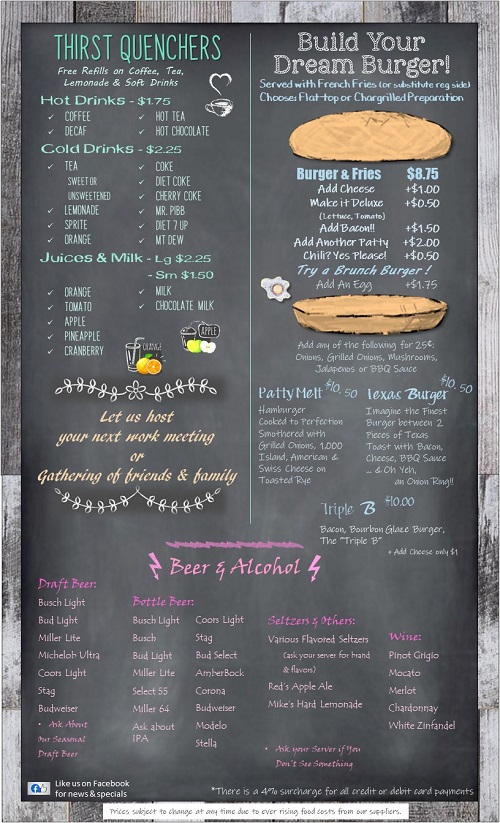 THIRST QUENCHERS
Free Refills on Coffee, Tea,
Lemonade & Soft Drinks
Hot Drinks - $1.75
✓ COFFEE
✓ DECAF
✓ HOT TEA
✓ HOT CHOCOLATE
Cold Drinks - $2.25
✓ TEA
SWEET OR
UNSWEETENED
✓ LEMONADE
✓ SPRITE
✓ ORANGE
✓ COKE
✓ DIET COKE
✓ CHERRY COKE
✓ MR. PIBB
✓ DIET 7 UP
✓ MT DEW
Juices & Milk - Lg $2.25
- Sm $1.50
✓ ORANGE
✓ TOMATO
✓ APPLE
✓ PINEAPPLE
✓ CRANBERRY
✓ MILK
✓ CHOCOLATE MILK
ORANGE
APPLE
Let us host
your next work meeting
or
Gathering of friends & family
Build Your
Dream Burger!
Served with French Fries (or substitute reg side)
Choose: Flat-top or Chargrilled Preparation
Burger & Fries $8.75
Add Cheese +$1.00
Make it Deluxe +$0.50
(Lettuce, Tomato)
Add Bacon!! +$1.50
Add Another Patty +$2.00
Chili? Yes Please! +$0.50
Try a Brunch Burger !
Add An Egg +$1.75
Add any of the following for 25¢:
Onions, Grilled Onions, Mushrooms,
Jalapenos or BBQ Sauce
Patty Melt $10.50
Hamburger
Cooked to Perfection
Smothered with
Grilled Onions, 1,000
Island, American &
Swiss Cheese on
Toasted Rye
Texas Burger $10.50
Imagine the Finest
Burger between 2
Pieces of Texas
Toast with Bacon,
Cheese, BBQ Sauce
... & Oh Yeh,
an Onion Ring!!
Triple B $10.00
Bacon, Bourbon Glaze Burger,
The "Triple B"
+ Add Cheese only $1
Beer & Alcohol
Draft Beer:
Busch Light
Bud Light
Miller Lite
Michelob Ultra
Coors Light
Stag
Budweiser
• Ask About
Our Seasonal
Draft Beer
Bottle Beer:
Busch Light
Busch
Bud Light
Miller Lite
Select 55
Miller 64
Ask about
IPA
Coors Light
Stag
Bud Select
AmberBock
Corona
Budweiser
Modelo
Stella
Seltzers & Others:
Various Flavored Seltzers
(ask your server for brand
& flavors)
Red's Apple Ale
Mike's Hard Lemonade
• Ask your Server if You
Don't See Something
Wine:
Pinot Grigio
Mocato
Merlot
Chardonnay
White Zinfandel
Like us on Facebook
for news & specials
*There is a 4% surcharge for all credit or debit card payments
Prices subject to change at any time due to ever rising food costs from our suppliers.